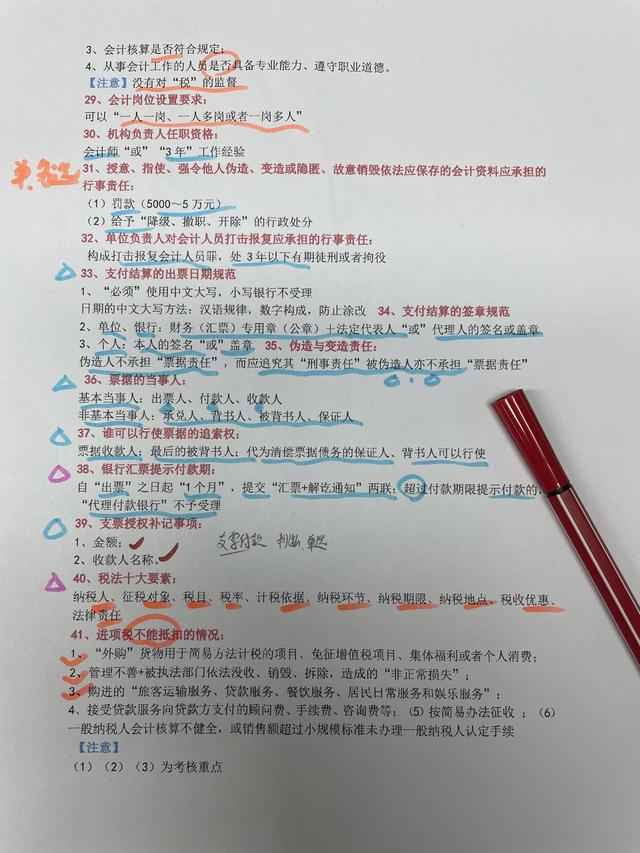 3、会计核算是否符合规定；
4、从事会计工作的人员是否具备专业能力、遵守职业道德。
【注意】没有对“税”的监督
29、会计岗位设置要求：
可以“一人一岗、一人多岗或者一岗多人”
30、机构负责人任职资格：
会计师“或”“3年”工作经验
31、授意、指使、强令他人伪造、变造或隐匿、故意销毁依法应保存的会计资料应承担的
行事责任：
（1）罚款（5000～5万元）
（2）给予“降级、撤职、开除”的行政处分
32、单位负责人对会计人员打击报复应承担的行事责任：
构成打击报复会计人员罪，处3年以下有期徒刑或者拘役
33、支付结算的出票日期规范
1、“必须”使用中文大写，小写银行不受理
日期的中文大写方法：汉语规律，数字构成，防止涂改 34、支付结算的签章规范
2、单位、银行：财务（汇票）专用章（公章）＋法定代表人“或”代理人的签名或盖章
3、个人：本人的签名“或”盖章 35、伪造与变造责任：
伪造人不承担“票据责任”，而应追究其“刑事责任”被伪造人亦不承担“票据责任”
36、票据的当事人：
基本当事人：出票人、付款人、收款人
非基本当事人：承兑人、背书人、被背书人、保证人
37、谁可以行使票据的追索权：
票据收款人；最后的被背书人；代为清偿票据债务的保证人、背书人可以行使
38、银行汇票提示付款期：
自“出票”之日起“1个月”，提交“汇票+解讫通知”两联；超过付款期限提示付款的，
“代理付款银行”不予受理
39、支票授权补记事项：
1、金额；
2、收款人名称。
40、税法十大要素：
纳税人、征税对象、税目、税率、计税依据、纳税环节、纳税期限、纳税地点、税收优惠、
法律责任
41、进项税不能抵扣的情况：
1、“外购”货物用于简易方法计税的项目、免征增值税项目、集体福利或者个人消费；
2、管理不善+被执法部门依法没收、销毁、拆除，造成的“非正常损失”；
3、购进的“旅客运输服务、贷款服务、餐饮服务、居民日常服务和娱乐服务”；
4、接受贷款服务向贷款方支付的顾问费、手续费、咨询费等；（5）按简易办法征收 ；（6）
一般纳税人会计核算不健全，或销售额超过小规模标准未办理一般纳税人认定手续
【注意】
（1）（2）（3）为考核重点